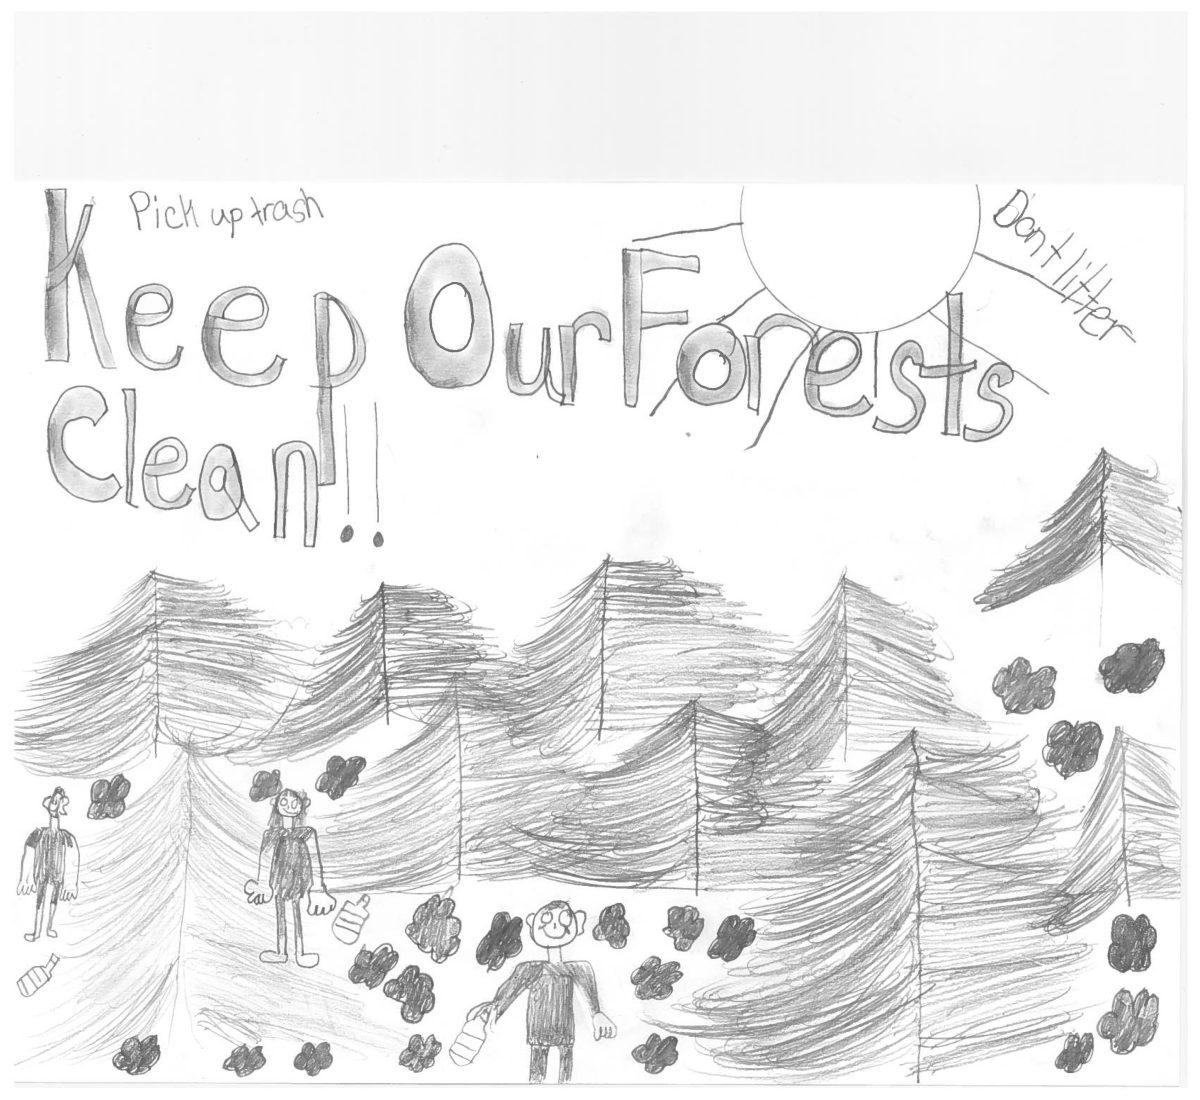 Pick up trash
Don't litter
Keep Our Forests
Clean!!